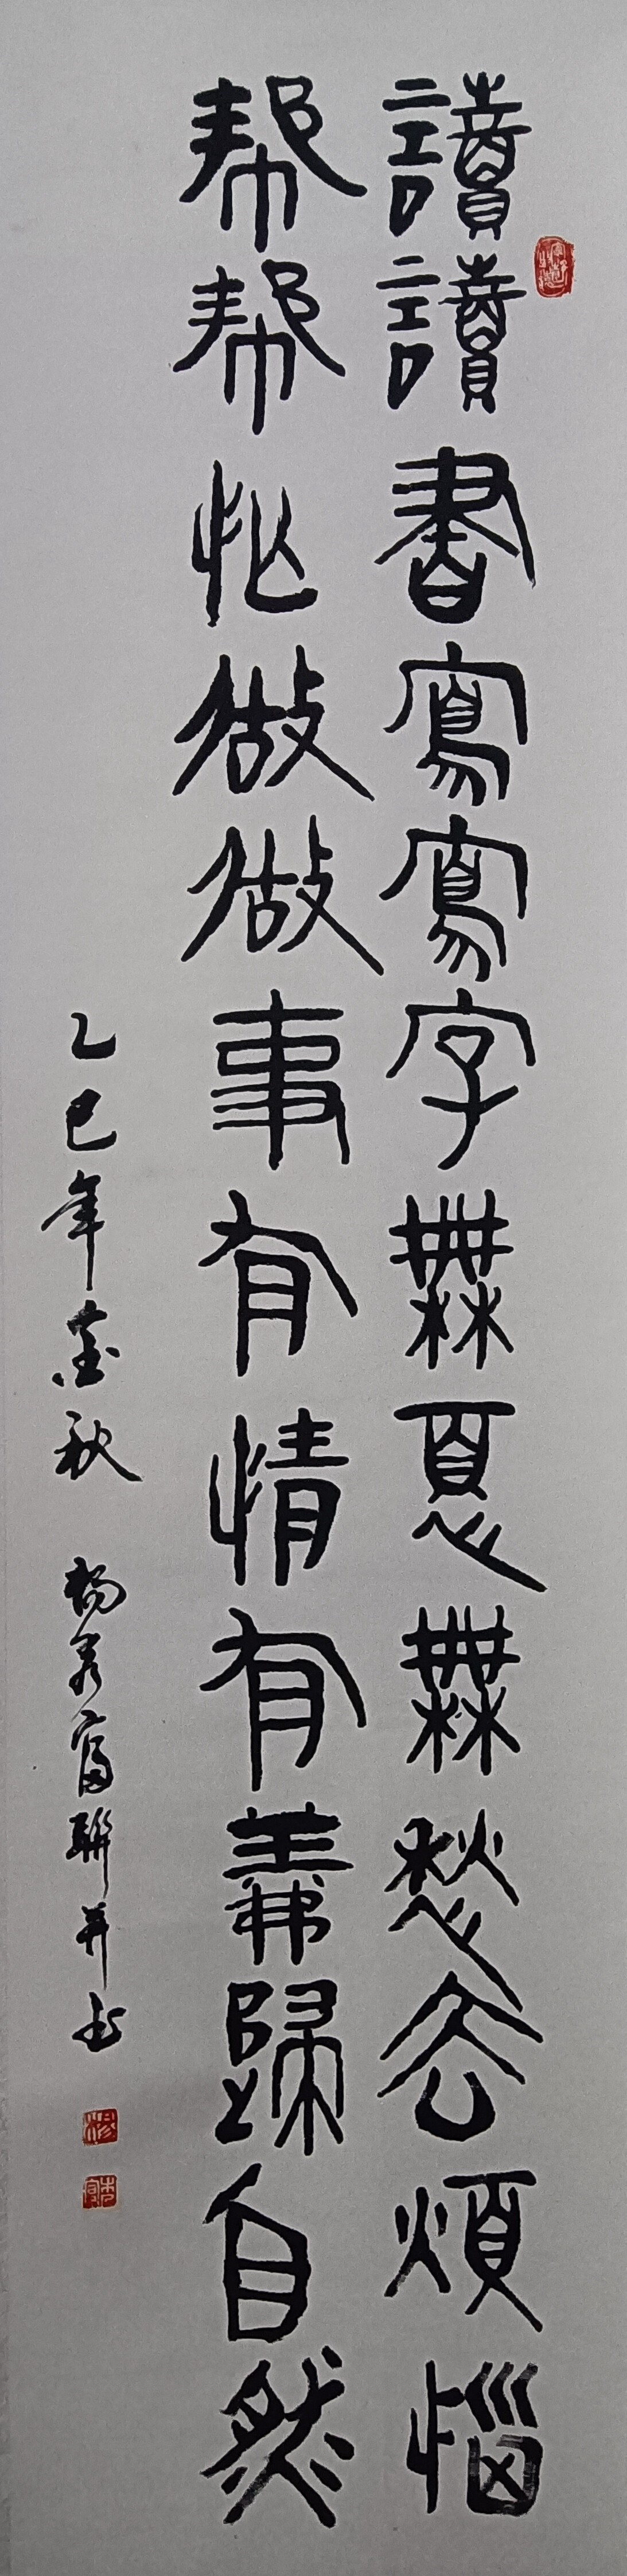 讀讀書寫寫字無憂無愁去煩惱
帮帮忙做做事有情有義歸自然
乙巳年金秋 楊富聯并书